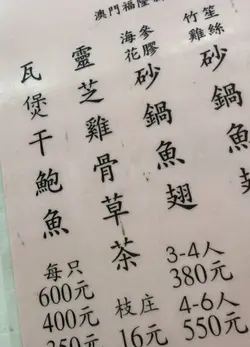 澳門福隆
竹笙
雞絲
砂鍋魚翅
3-4人
380元
4-6人
550元
海參
花膠
砂鍋魚翅
靈芝雞骨草茶
枝庄
16元
瓦煲干鮑魚
每只
600元
400元
350元